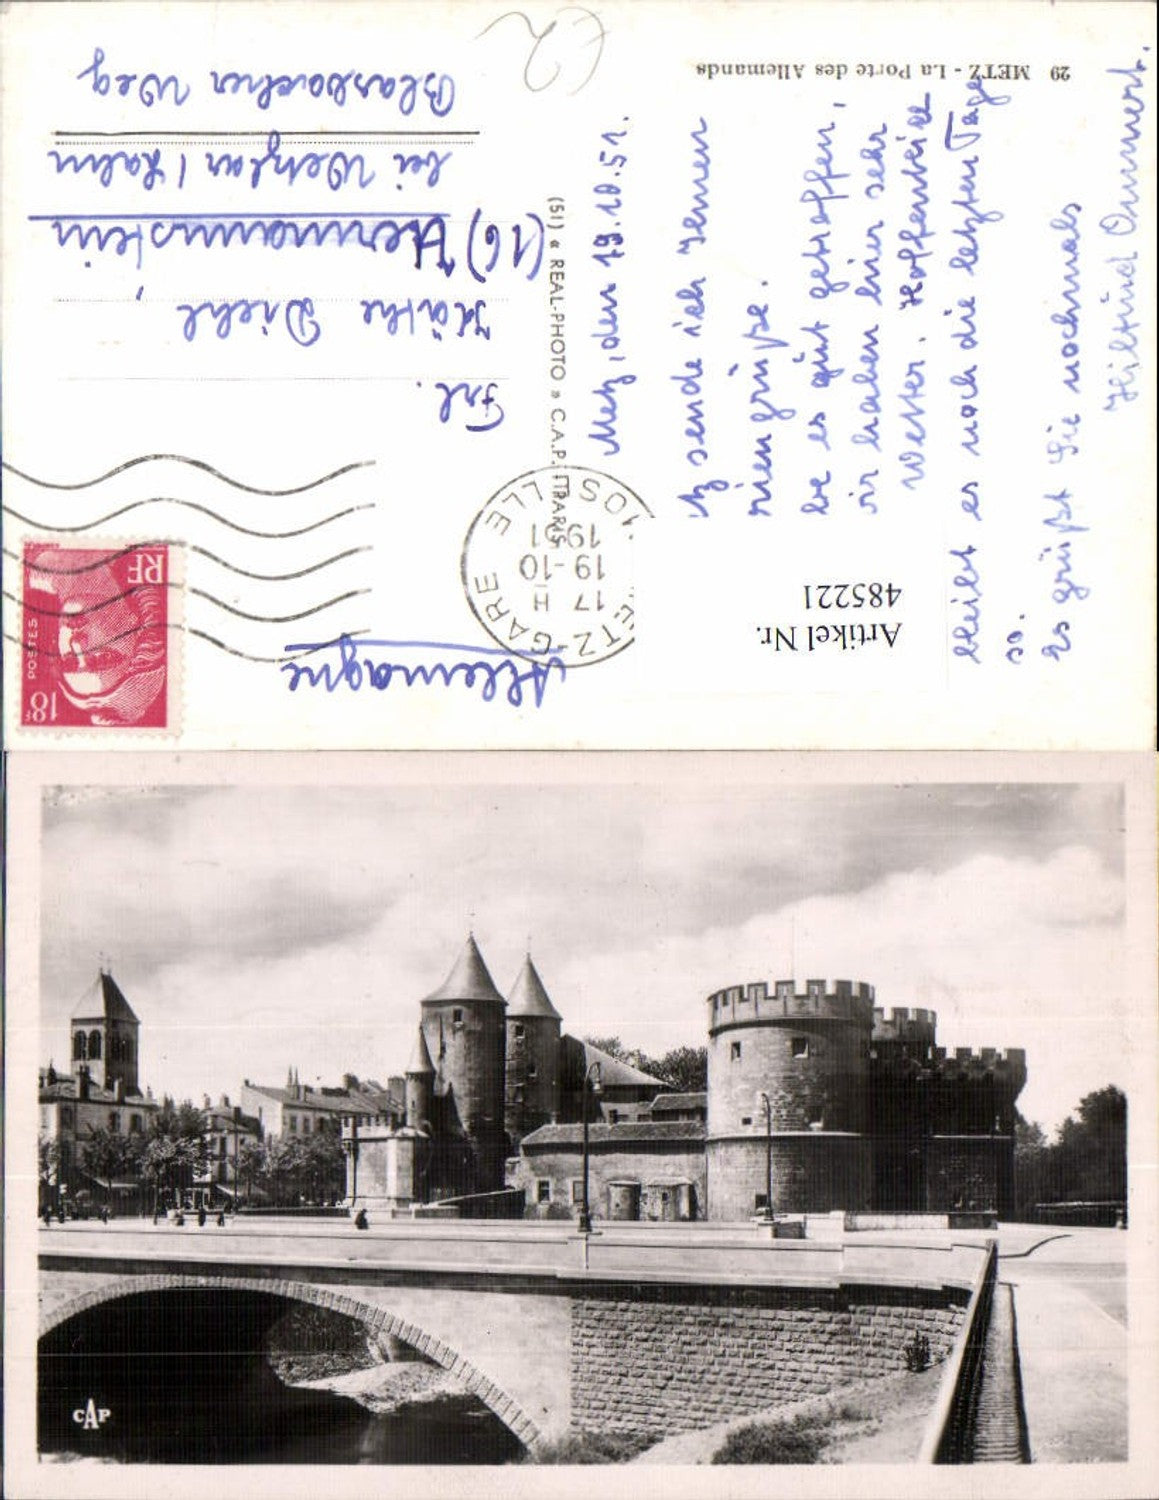 29 METZ - La Porte des Allemands
Metz, den 19.10.51.
sende ich Ihnen
riengrüße.
be es gut getroffen,
ir haben hier sehr
Wetter. Hoffentlich
bleibt es noch die letzten Tage
so.
Es grüßt Sie nochmals
Hiltrud Ommert.
Artikel Nr.
485221
(51) « REAL-PHOTO » C.A.P. PARIS
METZ-GARE
MOSELLE
17 H
19-10
1951
Allemagne
RF
POSTES
18F
Frl.
Käthe Diehl,
(16) Hermannstein
bei Wetzlar / Lahn
Blasbacher Weg
€2
CAP